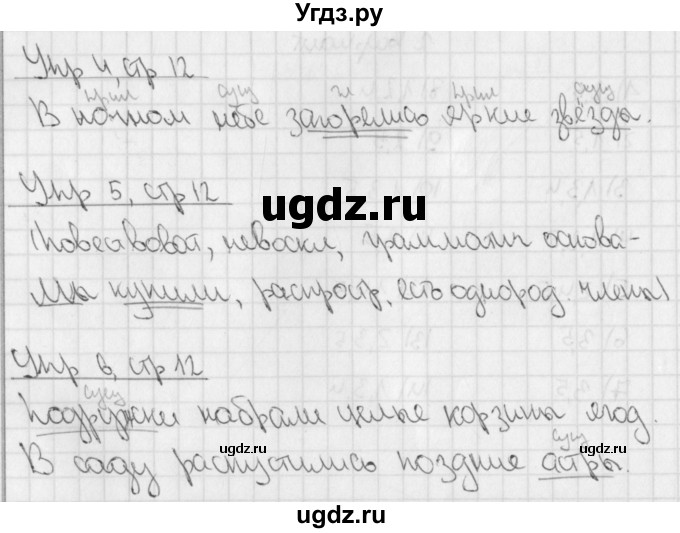 Угдз.ру
Упр 4, стр 12
прил сущ гл прил сущ
В ночном небе загорелись яркие звёзды.
Упр 5, стр 12
ugdz.ru
(повествоват, невоскл, граммати осно­ва-
Мы купили, распростр, есть однород. члены)
Упр 6, стр 12
сущ
Подружки набрали целые корзины ягод.
ugdz.ru ugdz.ru
сущ
В саду распустились поздние астры.
ugdz.ru